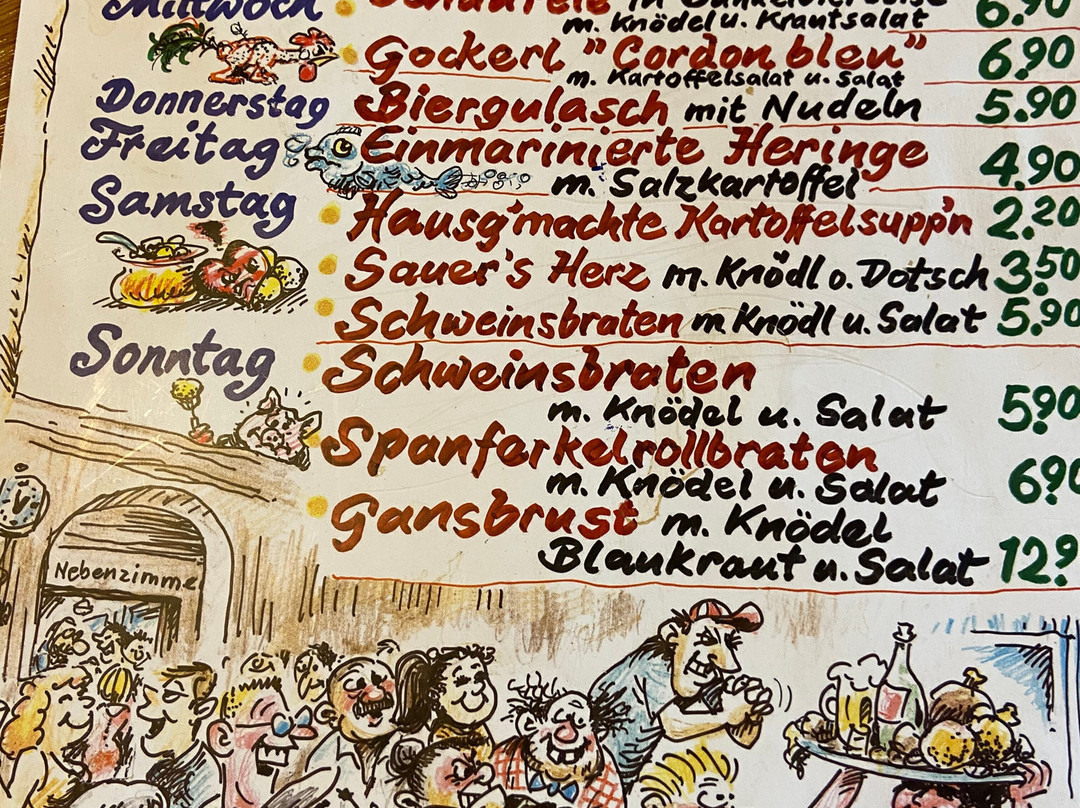 Mittwoch
m. Knödel u. Krautsalat 6.90
Gockerl "Cordon bleu" 6.90
m. Kartoffelsalat u. Salat
Donnerstag Biergulasch mit Nudeln 5.90
Freitag Einmarinierte Heringe 4.90
m. Salzkartoffel
Samstag Hausg'machte Kartoffelsupp'n 2.20
Sauer's Herz m. Knödl o. Dotsch 3.50
Schweinsbraten m Knödl u. Salat 5.90
Sonntag Schweinsbraten
m. Knödel u. Salat 5.90
Spanferkelrollbraten
m. Knödel u. Salat 6.90
Gansbrust m. Knödel
Blaukraut u. Salat 12.9
Nebenzimmer